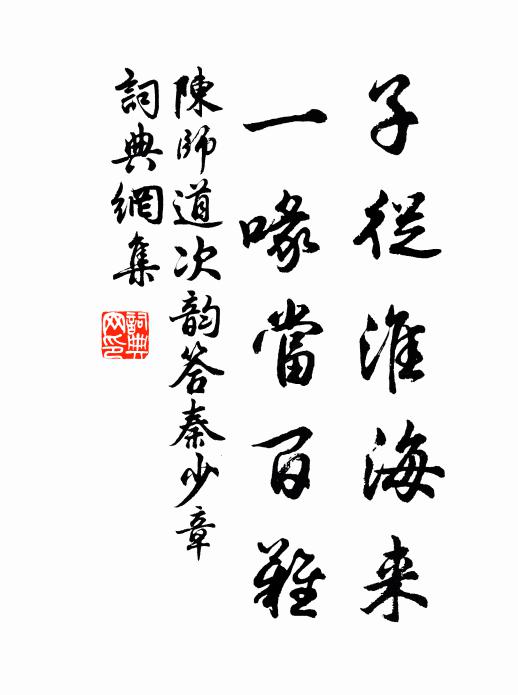 子從淮海来
一喙當百難
陳師道次韵答秦少章
詞典網集
詞典网印